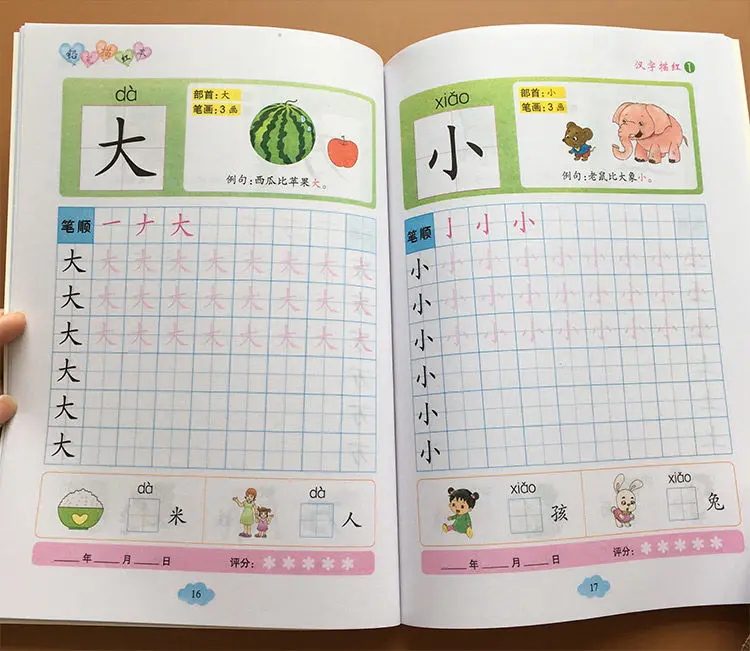 dà
大
部首:大
笔画:3 画
例句:西瓜比苹果大。
笔顺 一 ナ 大
大 大 大 大 大 大 大 大 大
大 大 大 大 大 大 大 大 大
大 大 大 大 大 大 大 大 大
大
大
大
dà
米
dà
人
____年____月____日 评分:
16
汉字描红 1
xiǎo
小
部首:小
笔画:3 画
例句:老鼠比大象小。
笔顺 亅 小 小
小 小 小 小 小 小 小 小 小
小 小 小 小 小 小 小 小 小
小 小 小 小 小 小 小 小 小
小
小
小
xiǎo
孩
xiǎo
兔
____年____月____日 评分:
17